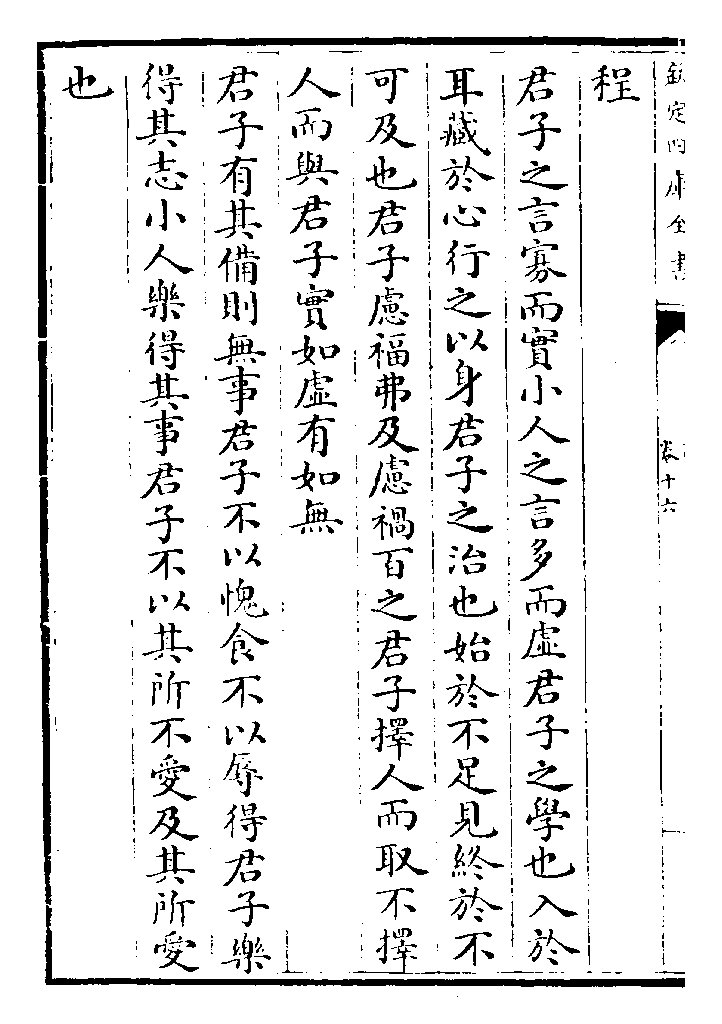 欽定四庫全書
卷十六
程
君子之言寡而實小人之言多而虛君子之學也入於
耳藏於心行之以身君子之治也始於不足見終於不
可及也君子慮福弗及慮禍百之君子擇人而取不擇
人而與君子實如虛有如無
君子有其備則無事君子不以愧食不以辱得君子樂
得其志小人樂得其事君子不以其所不愛及其所愛
也